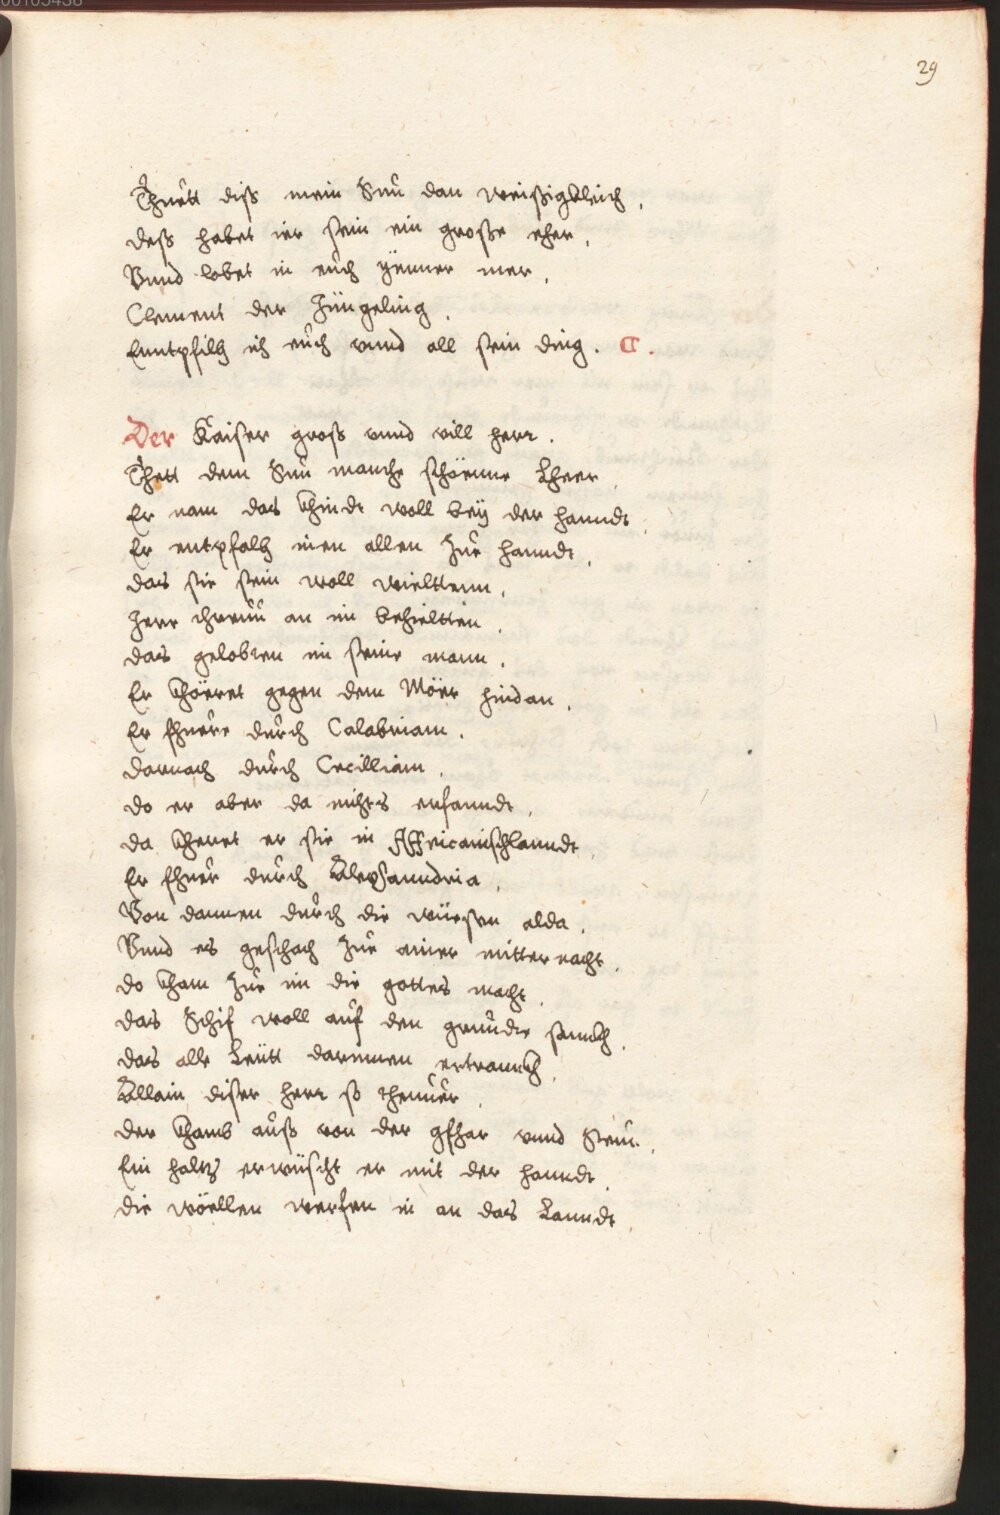 00105438
29
Thuett diß mein Sun dan weißigkleich,
deß habet ier sein ein große eher,
Vnnd lobet in euch ÿmmer mer,
Clement der Jüngeling,
Enntpfilh ich euch vnnd all sein ding. C.
Der Kaiser groß vnnd vill herr.
Thett dem Sun manche schöenne Lheer,
Er nam das Khindt woll beÿ der hanndt
Er entpfalh inen allen zue hanndt,
das sie sein woll wielttenn,
an im behieltten,
das gelobten im seine mann,
Er Khöeret gegen dem Möer hindan,
Er fhuere durch Calabriam,
darnach durch Cecilliam,
do er aber da nichts erfanndt,
da Kheret er sie in Affricanischlanndt,
Er fhuer durch Alexsanndria,
Von dannen durch die wüesten alda,
Vnnd es geschach zue ainer mitternacht,
do kham zue im die gottes macht,
das Schif woll auf den grundt sannckh,
das alle Leütt darinnen ertranckh,
Allain diser herr so theuer,
der khamb auß von der gfhar vnnd
Ein holtz erwüscht er mit der hanndt,
die wöellen werfen in an das Lanndt,